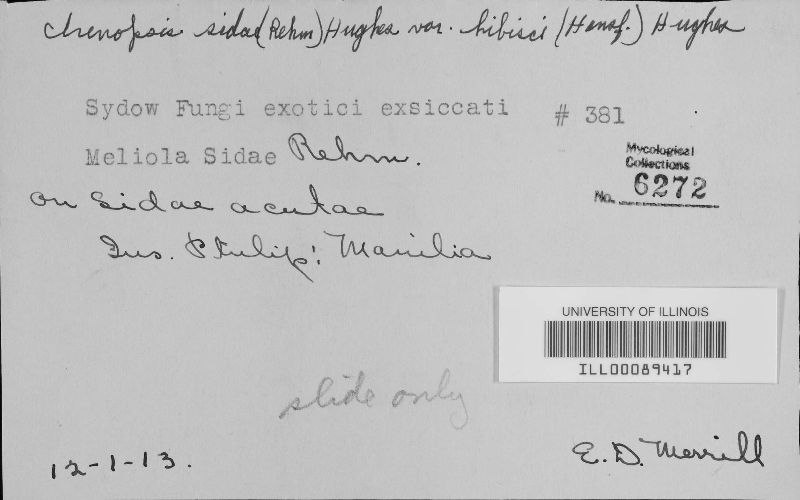 Chenopsis sidae (Rehm) Hughes var. hibisci (Hansf.) Hughes
Sydow Fungi exotici exsiccati # 381
Meliola Sidae Rehm.
Mycological
Collections
No. 6272
on Sidae acutae
Ins. Philip: Manilia
UNIVERSITY OF ILLINOIS
ILL00089417
slide only
12-1-13.
E. D. Merrill